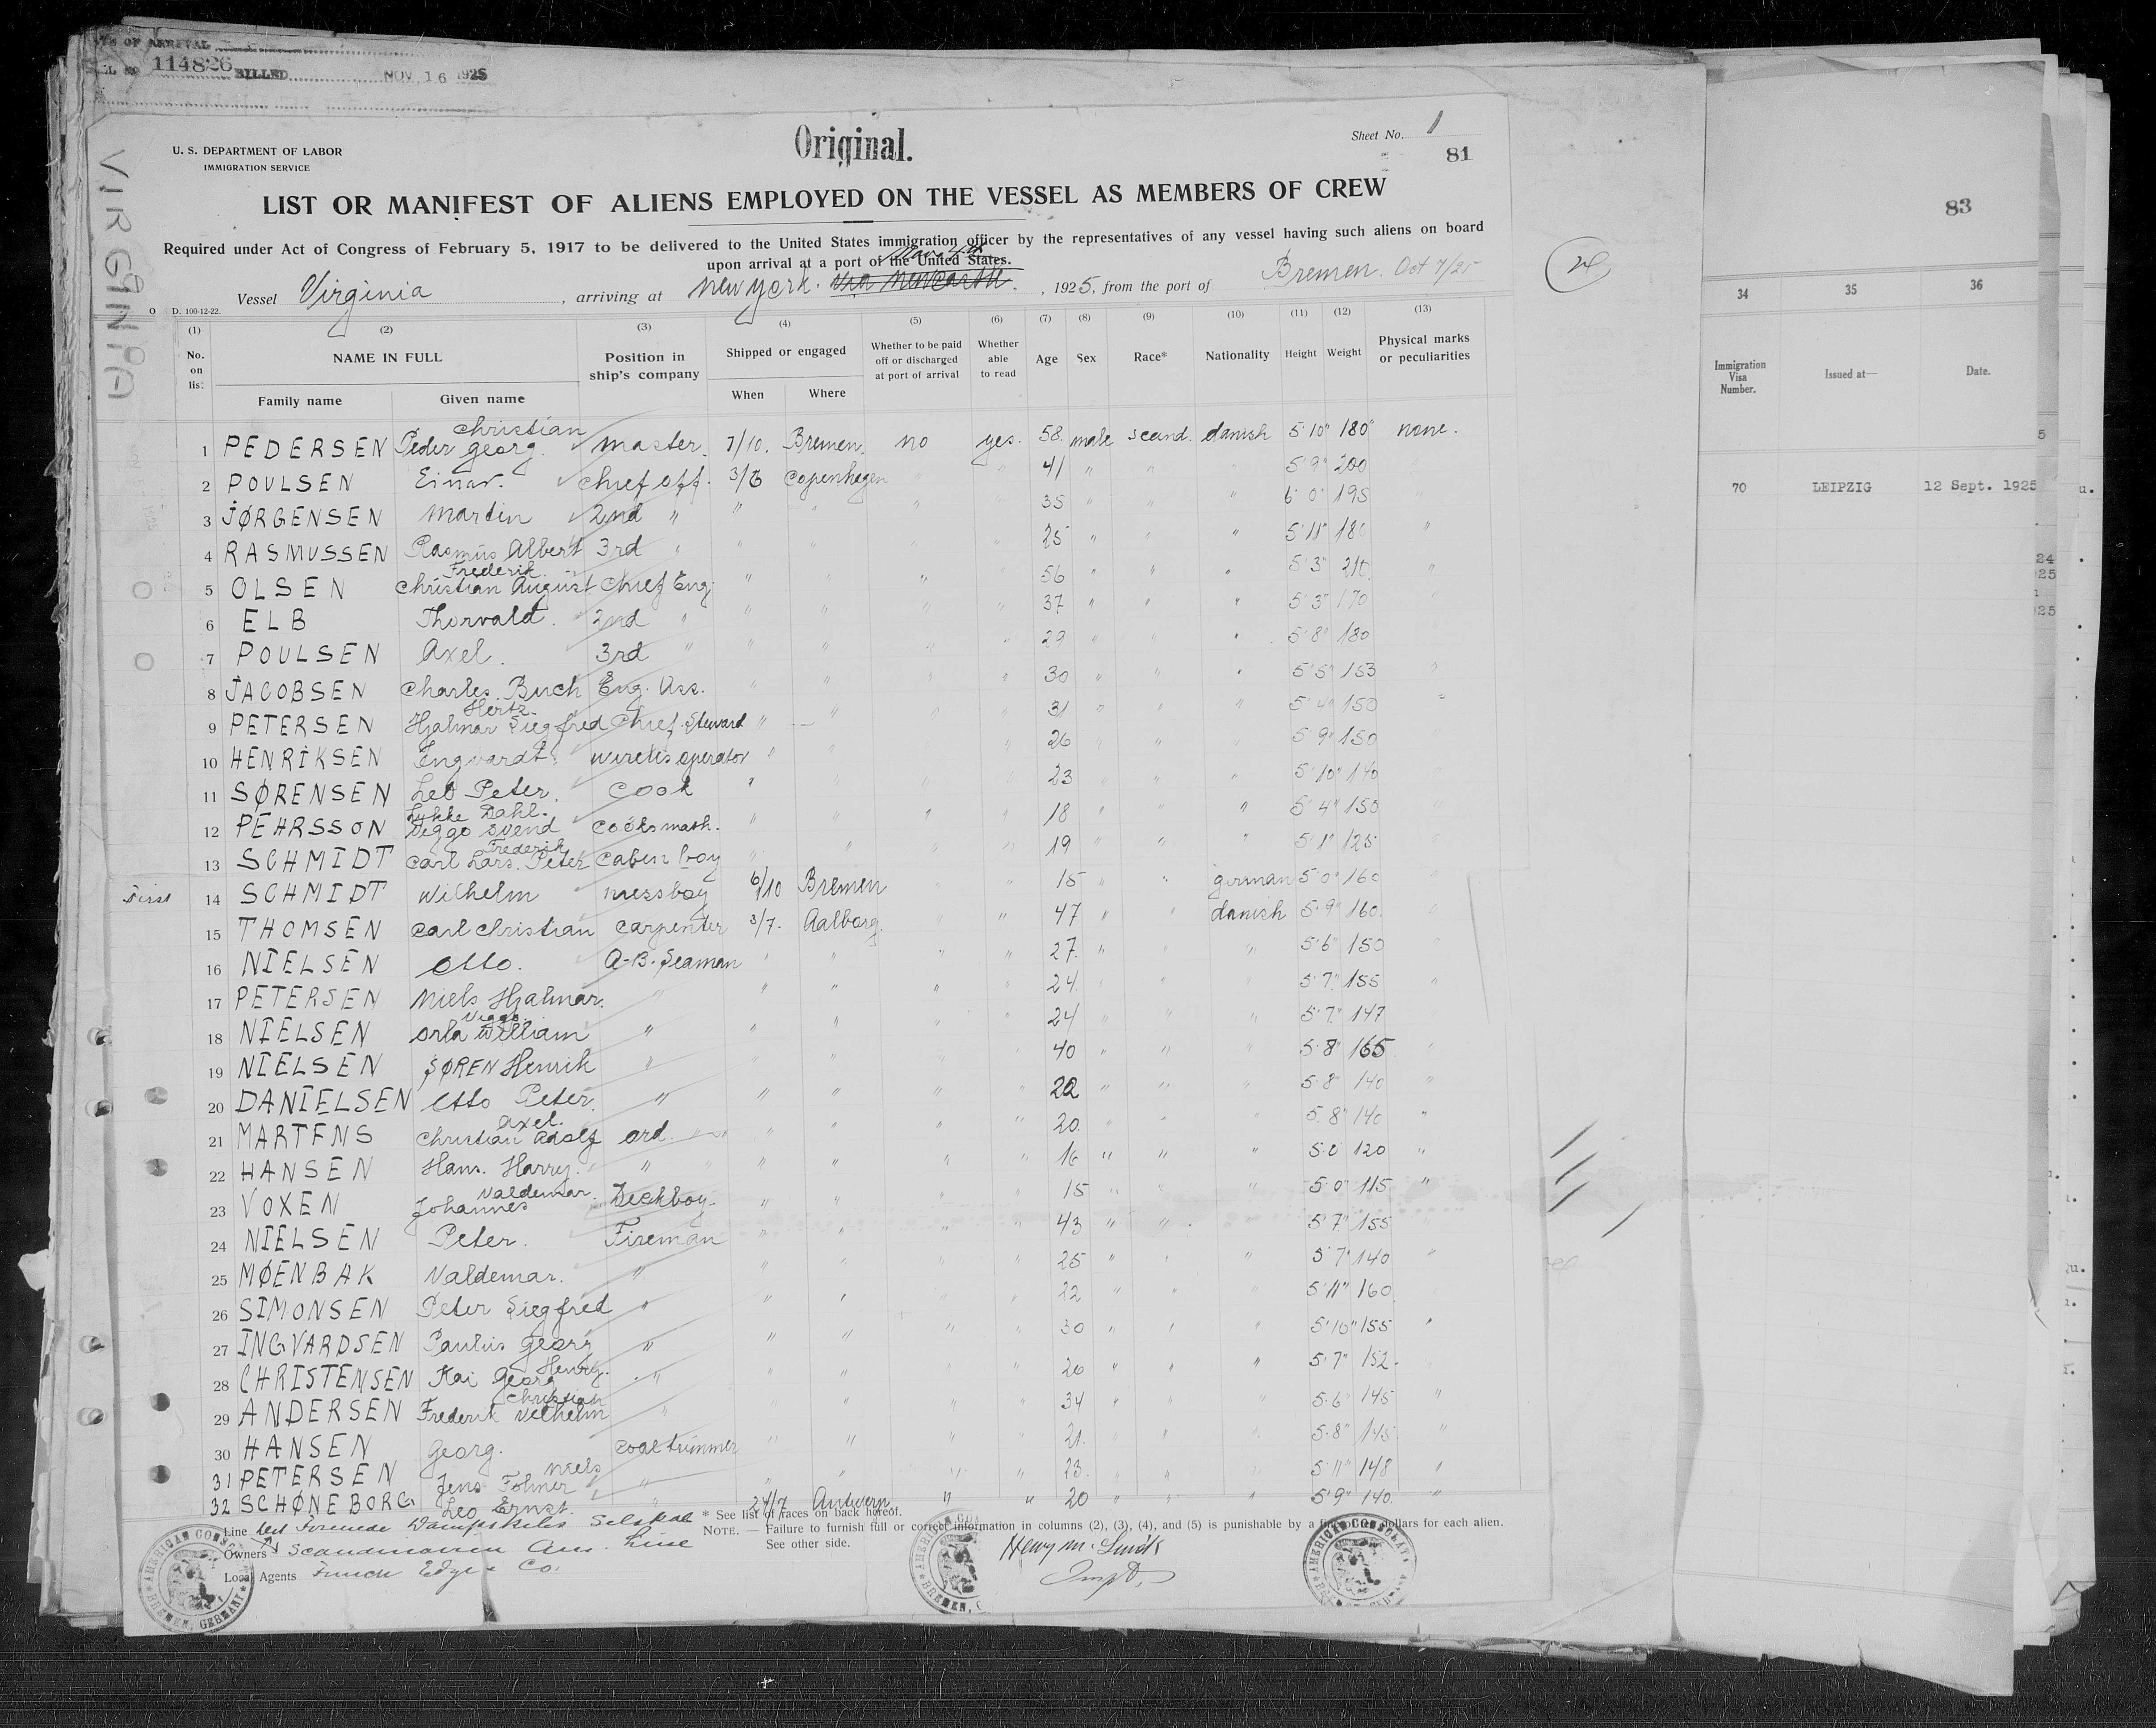 DATE OF ARRIVAL
114826 BILLED NOV 16 1925
VIRGINIA
U. S. DEPARTMENT OF LABOR
IMMIGRATION SERVICE
Original.
Sheet No. 1
81
LIST OR MANIFEST OF ALIENS EMPLOYED ON THE VESSEL AS MEMBERS OF CREW
Required under Act of Congress of February 5, 1917 to be delivered to the United States immigration officer by the representatives of any vessel having such aliens on board
upon arrival at a port of the United States.
Vessel Virginia, arriving at New York. via Newcastle, 1925, from the port of Bremen. Oct 7/25
D. 100-12-22.
(1) (2) (3) (4) (5) (6) (7) (8) (9) (10) (11) (12) (13)
No. on list NAME IN FULL Position in ship's company Shipped or engaged Whether to be paid off or discharged at port of arrival Whether able to read Age Sex Race* Nationality Height Weight Physical marks or peculiarities
Family name Given name When Where
1 PEDERSEN Peder Georg Christian master. 7/10. Bremen. no yes. 58. male scand. danish 5'10" 180 none.
2 POULSEN Einar. chief off. 3/6 Copenhagen 41 " " " 5'9" 200
3 JØRGENSEN Martin 2nd " " " 35 " " " 6'0" 195
4 RASMUSSEN Rasmus Albert 3rd " 25 " " " 5'11" 180 "
5 OLSEN Christian August Frederik Chief Eng. " " " 56 " " " 5'3" 210 "
6 ELB Thorvald. 2nd " " " 37 " " " 5'3" 170
7 POULSEN Axel. 3rd " " " 29 " " " 5'8" 180
8 JACOBSEN Charles Buch Eng. Ass. 30 " " " 5'5" 153
9 PETERSEN Hjalmar Siegfred Hertz. Chief Steward " 31 " " " 5'4" 150
10 HENRIKSEN Engvardt. wireles operator " 26 " " 5'9" 150
11 SØRENSEN Leo Peter. Cook " 23 " " 5'10" 140
12 PEHRSSON Viggo Svend Lykke Dahl. cooks math. " 18 " " " 5'4" 150
13 SCHMIDT Carl Lars. Peter Frederik Cabin boy 19 " " " 5'1" 125
First 14 SCHMIDT Wilhelm messboy 6/10 Bremen 15 " " german 5'0" 160
15 THOMSEN Carl Christian carpenter 3/7. Aalborg. 47 " " danish 5'9" 160.
16 NIELSEN Otto. A-B. Seaman " " 27. " " " 5'6" 150
17 PETERSEN Niels Hjalmar. " " " 24. 5'7" 155
18 NIELSEN Orla William Viggo. " " " 24 " " " 5'7" 147
19 NIELSEN SØREN Henrik " 40 " " " 5'8" 165
20 DANIELSEN Otto Peter. " " " 22 " " " 5'8" 140
21 MARTENS Christian Adolf Axel. ord. " " " 20. " " " 5'8" 140 "
22 HANSEN Hans. Harry. " " " 16 " " " 5'0 120 "
23 VOXEN Johannes Valdemar. Deckboy. " " 15 " " 5'0" 115 "
24 NIELSEN Peter. Fireman " " 43 " " 5'7" 155
25 MØENBAK Valdemar. " " " 25 " " " 5'7" 140 "
26 SIMONSEN Peter Siegfred " " " 22 " " 5'11" 160
27 INGVARDSEN Paulus Georg " " " 30 " " " 5'10" 155 "
28 CHRISTENSEN Kai Georg Henry. " " " 20 " " " 5'7" 152.
29 ANDERSEN Frederik Vilhelm Christian " " " 34 " " " 5'6" 145 "
30 HANSEN Georg. coal trimmer " " 21. " " " 5'8" 145 "
31 PETERSEN Jens Folmer Niels " " " 23. " " " 5'11" 148 "
32 SCHØNEBORG Leo Ernst. " 24/7 Antwerp " " 20 " " " 5'9" 140. "
* See list of races on back hereof.
NOTE. — Failure to furnish full or correct information in columns (2), (3), (4), and (5) is punishable by a fine of ten dollars for each alien.
See other side.
Line Det Forenede Dampskibs Selskab
Owners Scandinavian Am. Line
Local Agents Funch Edye & Co.
AMERICAN CONSULATE BREMEN, GERMANY
83
34 35 36
Immigration Visa Number. Issued at— Date.
70 LEIPZIG 12 Sept. 1925